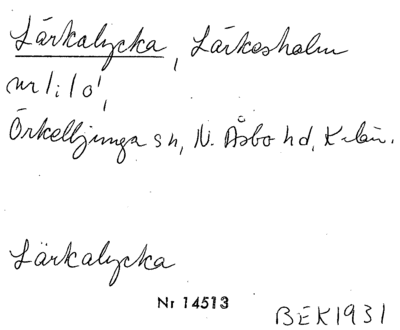 Lärkalycka, Lärkesholm
nr 1:10,
Örkelljunga sn, N. Åsbo hd, K.län.
Lärkalycka
Nr 14513
BEK1931